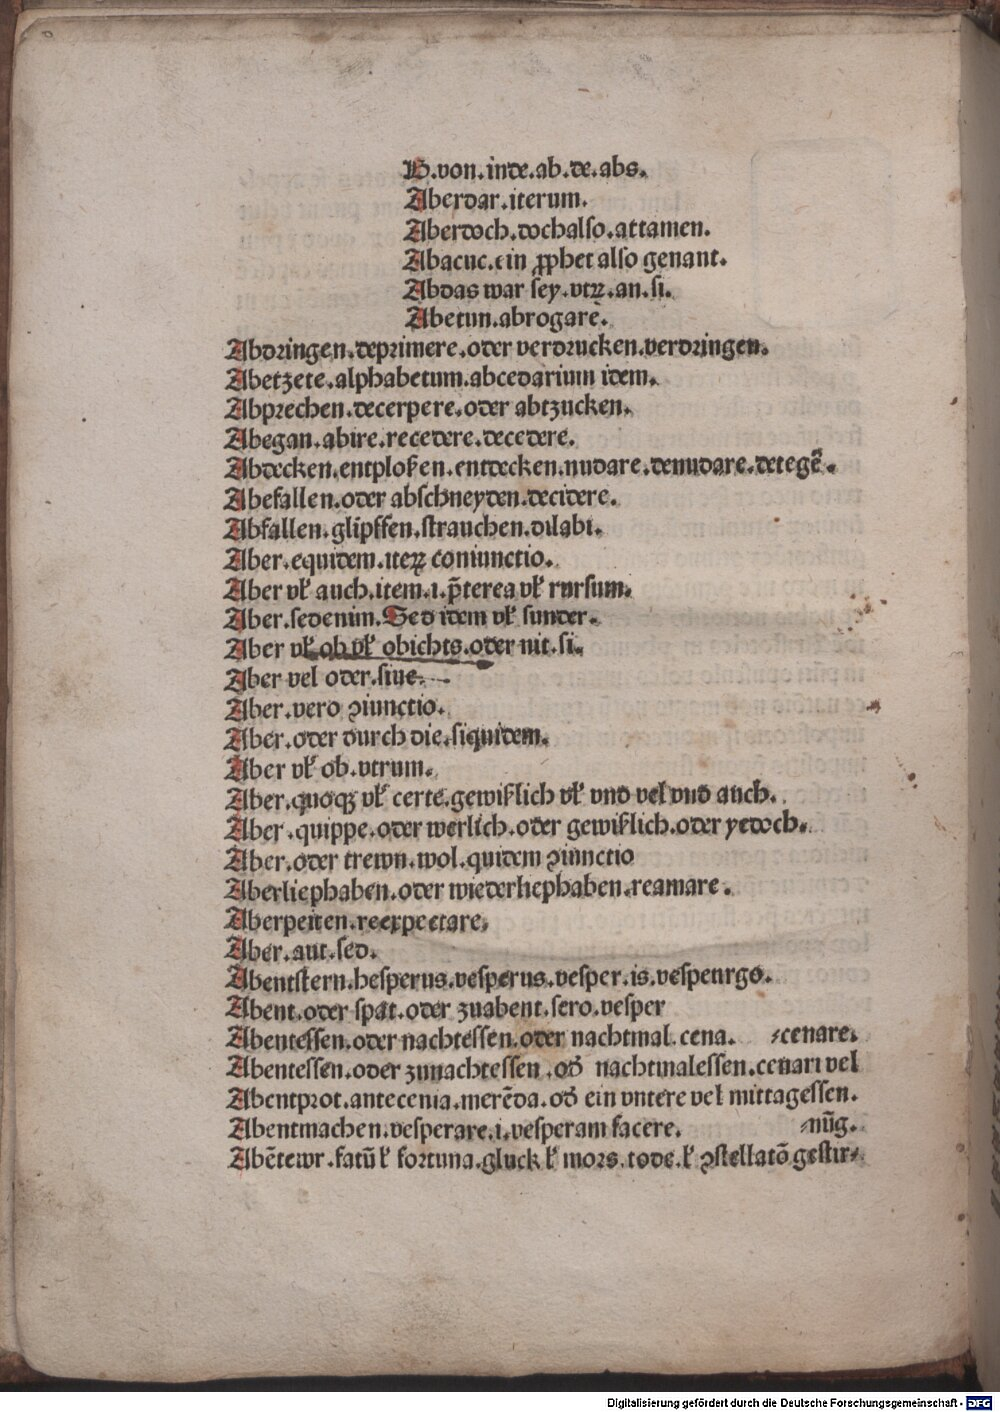 B.von.inde.ab.de.abs.
Aberdar.iterum.
Aberdoch.dochalso.attamen.
Abacuc.ein ꝓphet also genant.
Abdas war sey.vtrꝫ.an.si.
Abetun.abrogarē.
Abdringen.deprimere.oder verdrucken.verdringen.
Abetzete.alphabetum.abcedarium idem.
Abprechen.decerpere.oder abtzucken.
Abegan.abire.recedere.decedere.
Abdecken.entploßen.entdecken.nudare.denudare.detegē.
Abefallen.oder abschneyden.decidere.
Abfallen.glipffen.strauchen.dilabi.
Aber.equidem.iteꝝ coniunctio.
Aber vł auch.item.i.p̄terea vł rursum.
Aber.sedenim.Sed idem vł sunder.
Aber vł ob vł obichts.oder nit.si.
Aber vel oder.siue.
Aber.vero ꝯiunctio.
Aber.oder durch die.siquidem.
Aber vł ob.vtrum.
Aber.quoqꝫ vł certe.gewißlich vł vnd vel vnd auch.
Aber.quippe.oder werlich.oder gewißlich.oder yedoch.
Aber.oder trewn.wol.quidem ꝯiunctio
Aberliephaben.oder wiederliephaben.reamare.
Aberpeiten.reexpectare.
Aber.aut.sed.
Abentstern.hesperus.vesperus.vesper.is.vesperugo.
Abent.oder spat.oder zuabent.sero.vesper
Abentessen.oder nachtessen.oder nachtmal.cena. ⸗cenare.
Abentessen.oder zunachtessen.od̄ nachtmalessen.cenari vel
Abentprot.antecenia.merēda.od̄ ein vntere vel mittagessen.
Abentmachen.vesperare.i.vesperam facere. ⸗nūg.
Abētewr.fatū ł fortuna.gluck ł mors.tode.ł ꝯstellatō gestir⸗
Digitalisierung gefördert durch die Deutsche Forschungsgemeinschaft - DFG